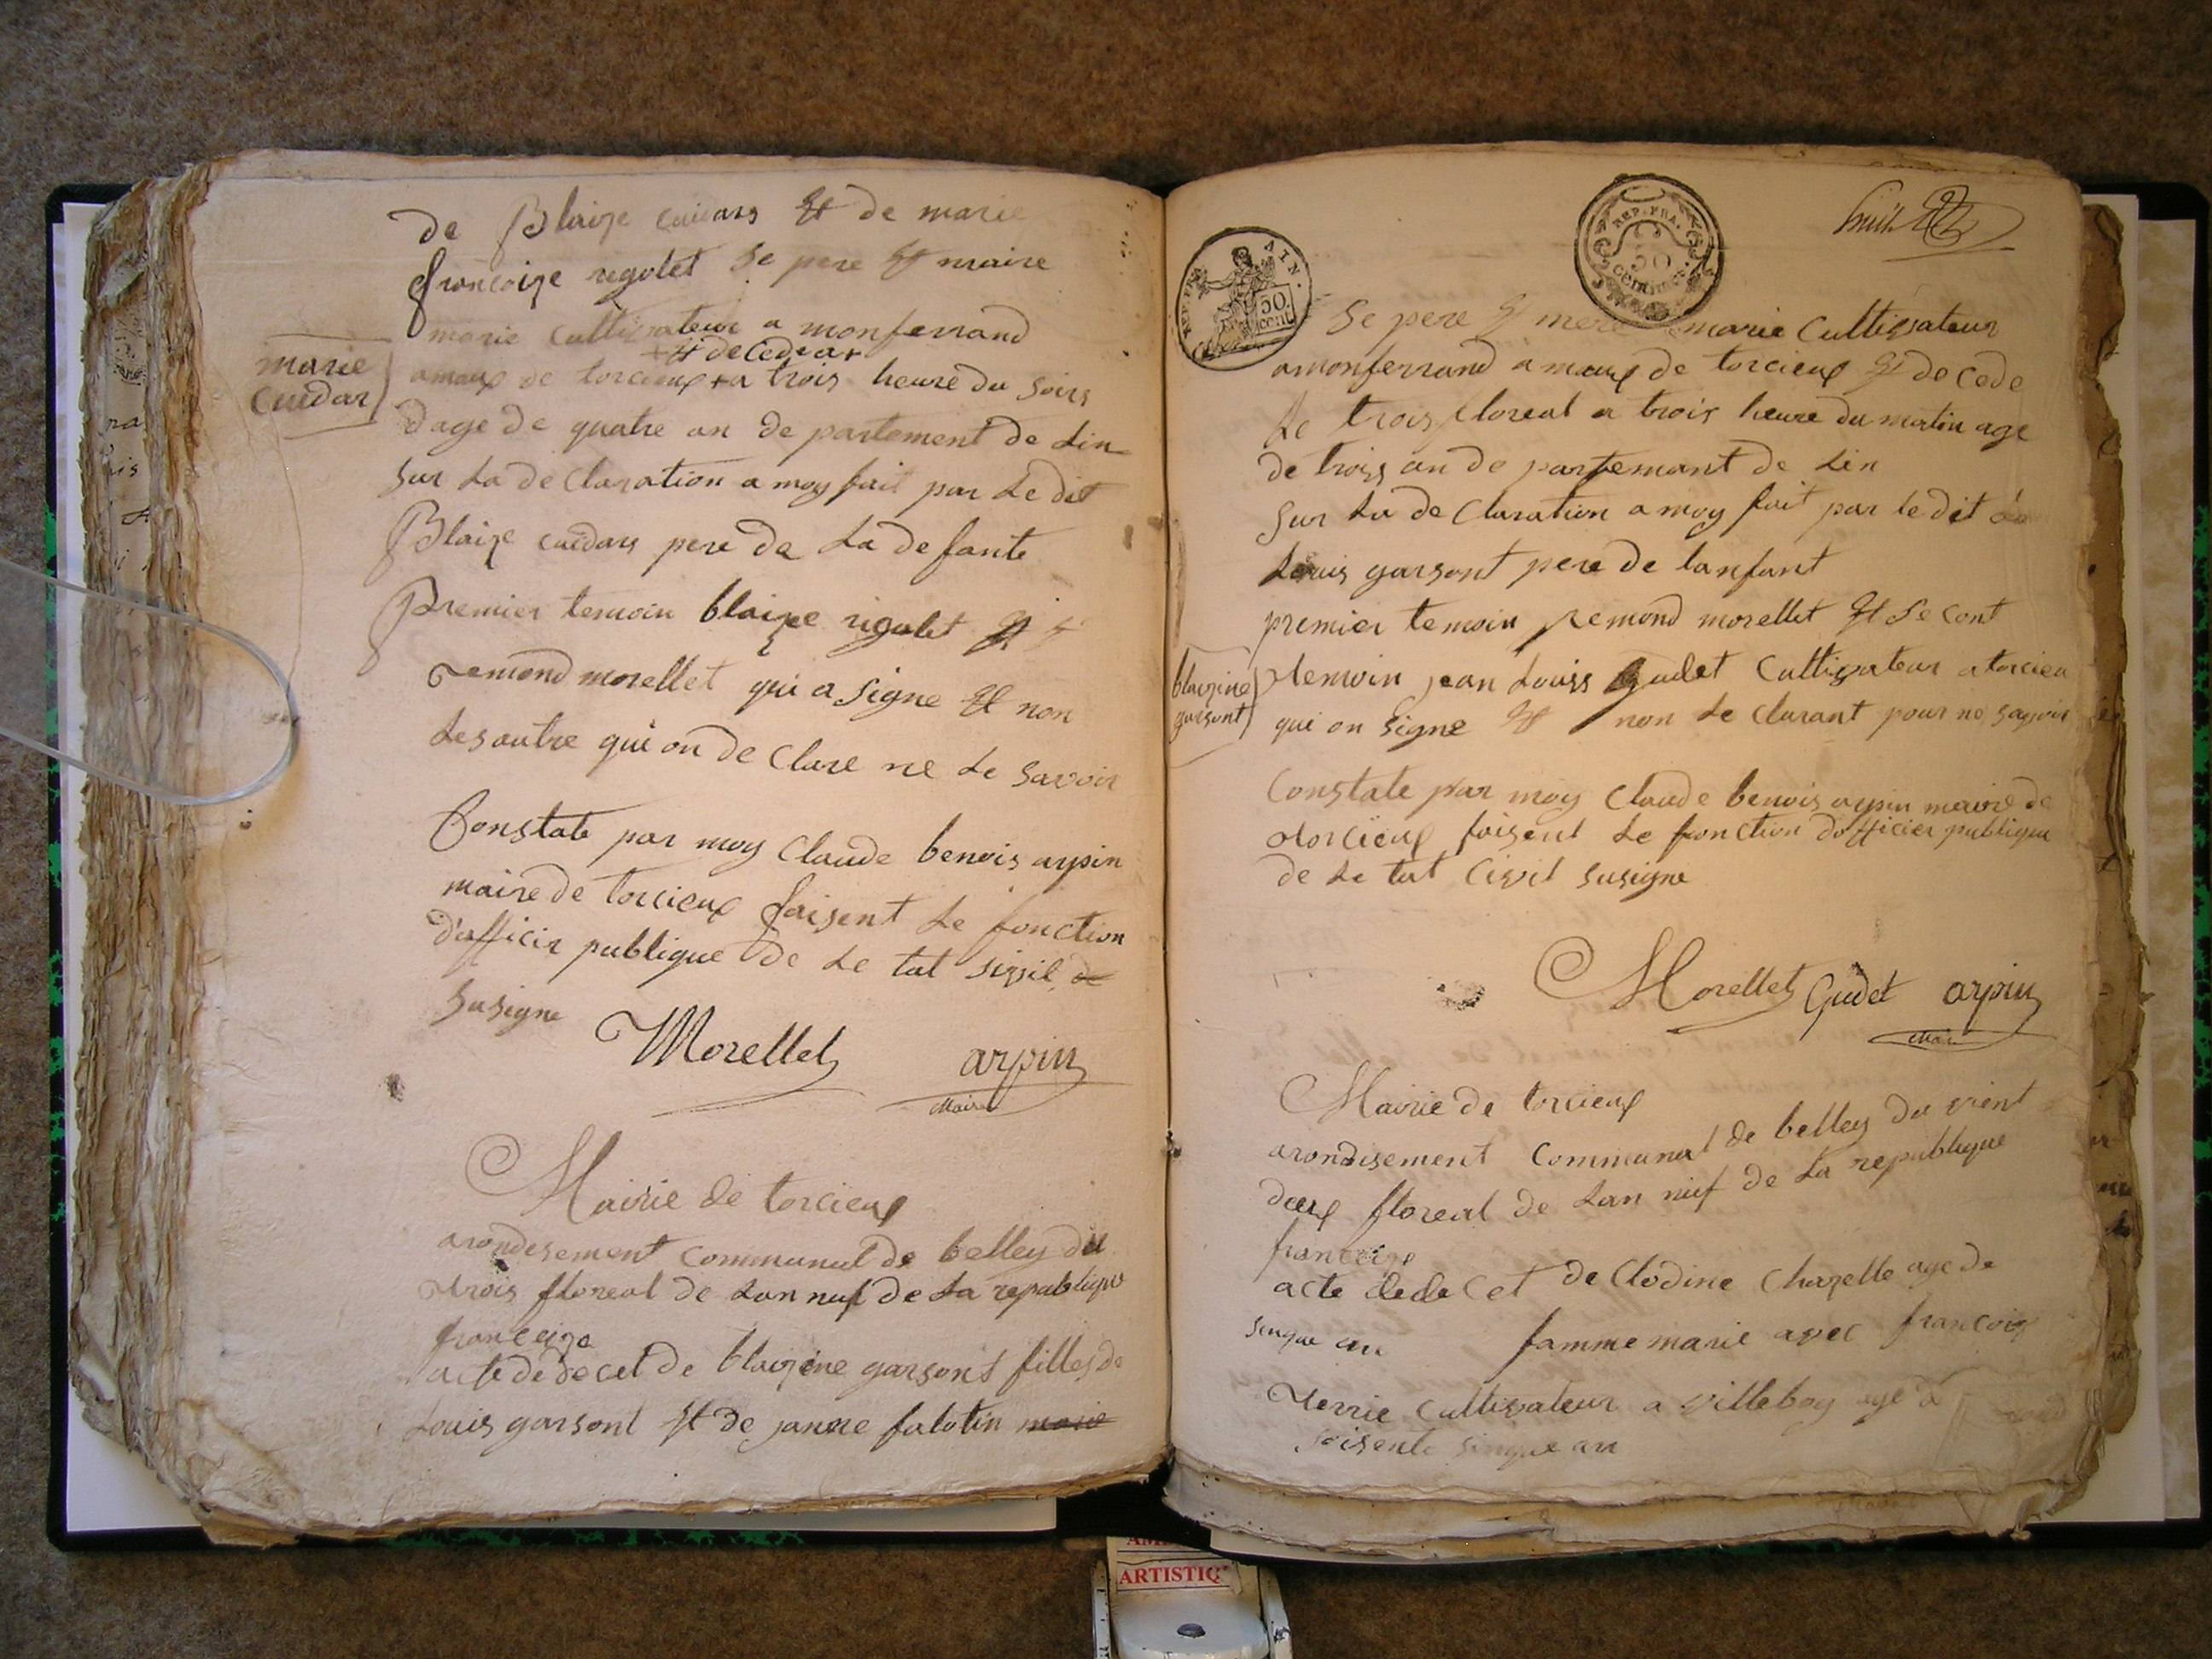 de Blaize cuidars et de marie
francoize rigolet se pere et maire
marie cultivateur a monferrand
et decedear
amaux de torcieux + a trois heure du soirs
marie
cuidar
dage de quatre an de partement de Lin
sur La de Claration a moy fait par Le dit
Blaize cuidars pere de La de fante
Premier temoin blaize rigolet et
remond morellet qui a signe et non
Les autre qui on de Clare ne Le savoir
Constate par moy Claude benois arpin
maire de torcieux faisent Le fonction
d'officir publique de Le tat sivil de
susigne
Morellet arpin
Maire
Mairie de torcieux
arondesement communal de belley du
trois floreal de Lan nuf de La republique
franceize
acte de de cet de blaizine garsont filles de
Louis garsont et de janne falotin marie
huit
REP. FRA.
50
CENTIMES
REP. FRA. AIN.
50
cent
Se pere et mere marie Cultivateur
a monferrand a maux de torcieux et de cede
Le trois floreal a trois heure du matin age
de trois an de partemant de Lin
sur La de Claration a moy fait par le dit
Louis garsont pere de lanfant
premier temoin remond morellet et se cont
blaizine
garsont
temoin jean Louis Gudet Cultivateur a torcieu
qui on signe et non Le clarant pour ne savoir
Constate par moy Claude benois arpin maire de
torcieux faisent Le fonction dofficier publique
de Le tat Civil susigne
Morellet Gudet arpin
Maire
Mairie de torcieux
arondisement Communal de belley du vient
deux floreal de Lan nuf de La republique
franceize
acte de de Cet de Clodine Chazelle age de
sinque an famme marie avec francois
Verrie Cultivateur a villeboy age d
soisente sinque an
ARTISTIQ